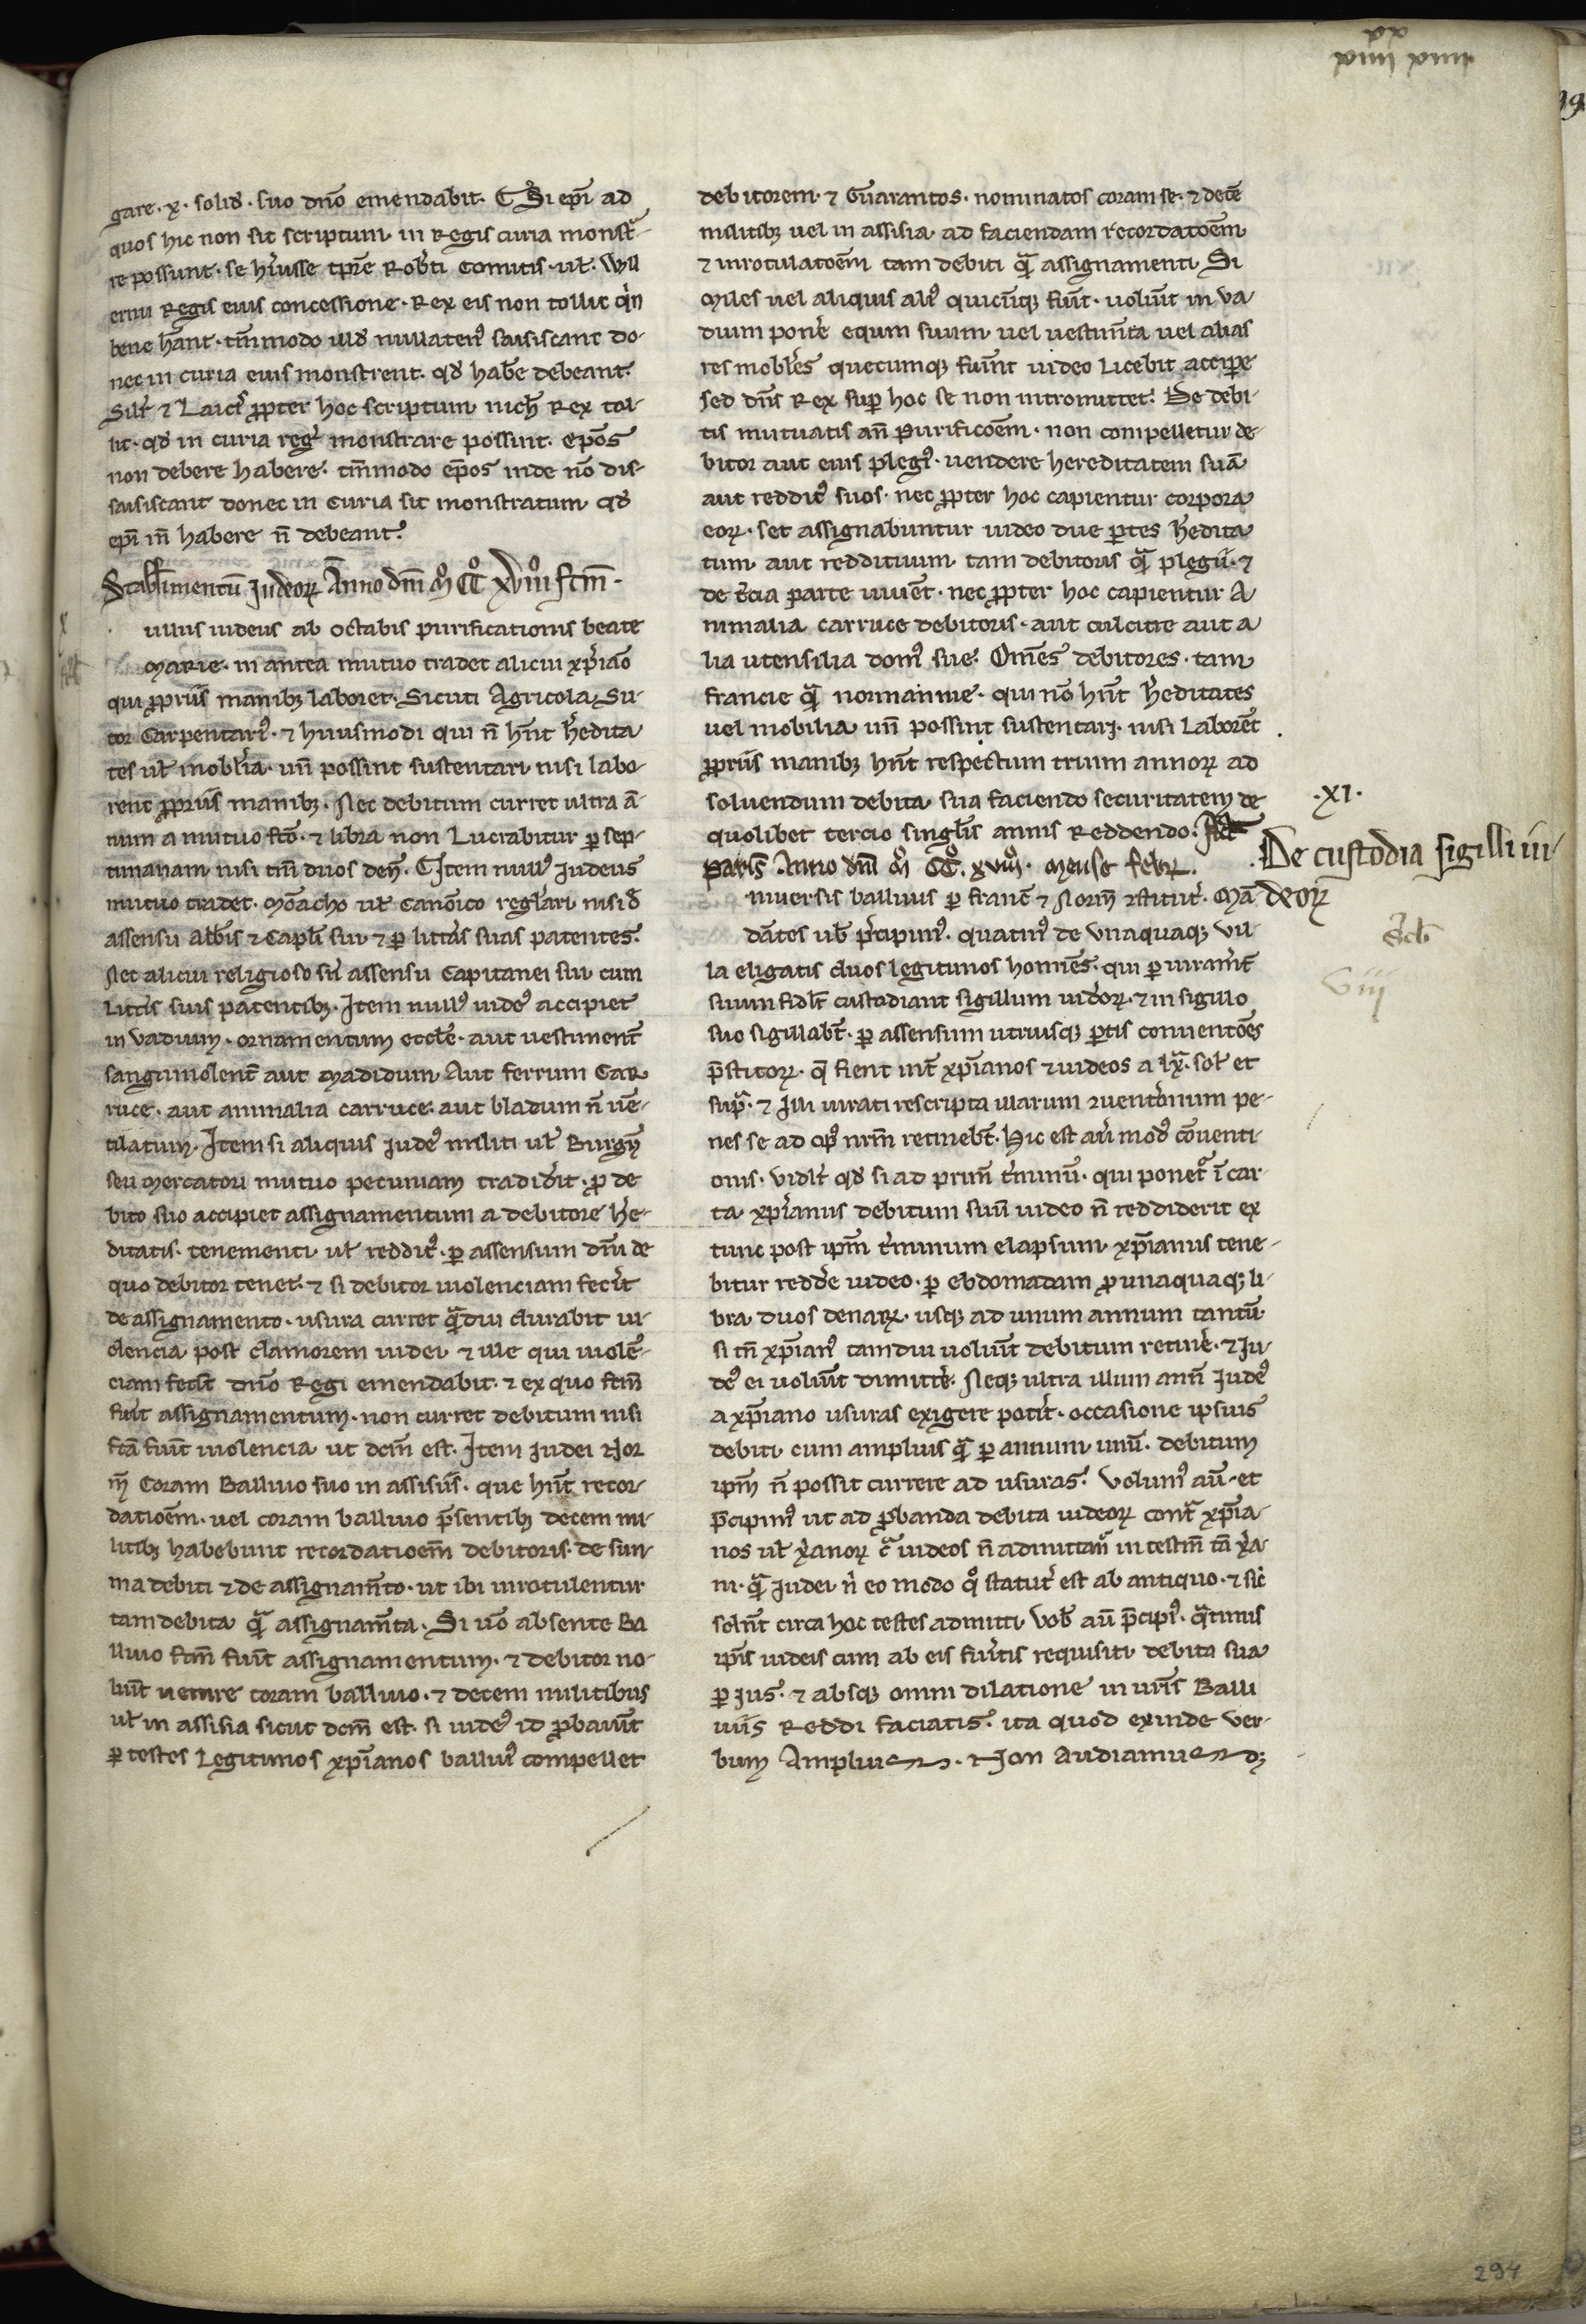 gare · x · solid̄ · suo dn̄o emendabit. ¶ Si ep̄i ad
quos hic non sit scriptum in Regis curia monstͣ-
re possunt. se hͥuisse tp̄re Rob̾ti Comitis. ul̄. Will
ermi Regis eius concessione. Rex eis non tollit qͥn
bene h̄ant. tm̄modo illd̄ nullatenꝰ saisiscant do-
nec in curia eius monstrent. qd̄ hab̄e debeant.
Silr̄ ⁊ Laicꝭ ꝓpter hoc scriptum nich̄ Rex tol-
lit. qd̄ in curia regꝭ monstrare possint. ep̄os
non debere habere. tm̄modo ep̄os inde nō dis-
saisiscant donec in Curia sit monstratum qd̄
ep̄i in̄ habere n̄ debeant.
Stabl̄imentū Judeoꝝ Anno dn̄i mͦ ccͦ xviiiͦ fc̄m.
ullus iudeus ab octabis purificationis beate
Marie. in antea mutuo tradet alicui xp̄iāo
qui ꝓpriis manibꝫ laboret. Sicuti Agricola. Su-
tor Carpentariꝰ. ⁊ huiusmodi qui n̄ hn̄t h̾edita
tes ul̄ mobl̾ia. un̄ possint sustentari nisi labo-
rent ꝓpriis manibꝫ. Nec debitum curret ultra ā-
num a mutuo fc̄o. ⁊ libra non Lucrabitur ꝑ sep-
timanam nisi tm̄ duos den̄. ¶ Item nullꝰ Judeus
mutuo tradet. Mōacho ul̄ Canōico regl̾ari nisi d̄
assensu Abb̄is ⁊ Capl̄i sui ⁊ ꝑ litt̾as suas patentes.
Nec alicui religioso sn̄ assensu Capitanei sui cum
Litt̾is suis patentibꝫ. Item nullꝰ iudeꝰ accipiet
in vadium. ornamentum eccl̄e. aut uestiment̄
sanguinolent̄ aut madidum Aut ferrum Car
ruce. aut animalia carruce. aut bladum n̄ uē-
tilatum. Item si aliquis Judeꝰ militi ul̄ Burgn̄
seu Mercatori mutuo pecuniam tradid̾it. ꝓ de
bito suo accipiet assignamentum a debitore h̾e-
ditatis. tenementi ul̄ redditꝰ. ꝑ assensum dn̄i de
quo debitor tenet. ⁊ si debitor uiolenciam fec̾it
de assignamento. usura curret qͣmdiu durabit ui-
olencia post clamorem iudei ⁊ ille qui uiolē-
ciam fec̾it dn̄o Regi emendabit. ⁊ ex quo fc̄m
fu̾it assignamentum. non curret debitum nisi
fc̄a fu̾it uiolencia ut dc̄m est. Item Judei Nor
m̄ Coram Balliuo suo in assisiis. que hn̄t recor-
datioēm. uel coram balliuo p̄sentibꝫ decem mi-
litibꝫ habebunt recordatioēm debitoris. de sum
ma debiti ⁊ de assignam̄to. ut ibi inrotulentur
tam debita qͣm assignam̄ta. Si uō absente Ba
lliuo fc̄m fu̾it assignamentum. ⁊ debitor no-
lu̾it uenire coram balliuo. ⁊ decem militibus
ul̄ in assisia sicut dc̄m est. si iudeꝰ id ꝓbau̾it
ꝑ testes Legitimos xp̄ianos balliuꝰ compellet
debitorem. ⁊ Guarantos. nominatos coram se. ⁊ decē
militibꝫ uel in assisia ad faciendam recordatoēm
⁊ inrotulatoēm tam debiti qͣm assignamenti. Si
Miles uel aliquis aliꝰ quicūqꝫ fu̾it. uolu̾it in va
dium pon̾e equm suum. uel uestim̄ta uel alias
res mobl̾es quecumqꝫ fu̾int iudeo Licebit accipe
sed dn̄s Rex suꝑ hoc se non intromittet. De debi-
tis mutuatis an̄ Purificoēm. non compelletur de-
bitor aut eius plegiꝰ. uendere hereditatem suā
aut redditꝰ suos. nec ꝓpter hoc capientur corpora
eoꝝ. set assignabuntur iudeo due ꝑtes h̾edita
tum aut reddituum tam debitoris qͣm plegii. ⁊
de t̾cia parte uiuēt. nec ꝓpter hoc capientur A
nimalia carruce debitoris. aut culcitre aut a
lia utensilia domꝰ sue. Om̄es debitores. tam
francie qͣm normannie. qui nō hn̄t h̾editates
uel mobilia un̄ possint sustentari. nisi Laborēt
ꝓpriis manibꝫ hn̄t respectum trium annoꝝ ad
soluendum debita sua faciendo securitatem de
quolibet tercio singl̾is annis Reddendo. Act̄
Paris̄ Anno dn̄i mͦ ccͦ. xviiiͦ. mense febr̄.
niuersis balliuis ꝑ franc̄ ⁊ Norm̄ ꝯstitut̾. Mā
dātes uob̄ p̾cipimꝰ. quatinꝰ de unaquaqꝫ vil-
la eligatis duos legitimos homīes. qui ꝑ iuram̄t̄
suum fidl̾r custodiant sigillum iud̾oꝝ. ⁊ in sigillo
suo sigillab̄t. ꝑ assensum utriusqꝫ ꝑtis conuentoēs
p̄stitoꝝ. q̄ fient int̾ xp̄ianos ⁊ iudeos a lxͣ. sol̄ et
supͣ. ⁊ Illi iurati rescripta illarum ꝯuentionum pe-
nes se ad opꝰ nr̄m retineb̄t. Hic est aūt modꝰ cōuenti-
onis. Vidl̾t qd̄ si ad prim̄ t̾minū. qui ponet̾ ī car-
ta. xp̄ianus debitum suū iudeo n̄ reddiderit ex
tunc post ip̄m t̾minum elapsum xp̄ianus tene-
bitur redd̾e iudeo. ꝑ ebdomadam ꝓ unaquaqꝫ li-
bra duos denaꝝ. usqꝫ ad unum annum tantū.
si tn̄ xp̄ianꝰ tamdiu uolu̾it debitum retin̾e. ⁊ Ju-
deꝰ ei uolu̾it dimitt̾e. Neqꝫ ultra illum ann̄ Judeꝰ
a xp̄iano usuras exigere pot̾it. occasione ipsius
debiti cum amplius qͣm ꝑ annum unū. debitum
ip̄m n̄ possit currere ad usuras. Volumꝰ aū. et
p̄cipimꝰ ut ad ꝓbanda debita iudeoꝝ contͣ xp̄ia-
nos ul̄ xp̾anoꝝ cͣ iudeos n̄ admittant̾ in testm̄ tā xp̾a-
ni. qͣm Judei nͥ eo modo qͦ statut̾ est ab antiquo. ⁊ sic̾
sol̾nt circa hoc testes admitti. Vob̄ aū p̄cipimꝰ. qͣtinus
ip̄is iudeis cum ab eis fu̾itis requisiti debita sua
ꝑ Jus. ⁊ absqꝫ omni dilatione in ur̄is Balli
uiis Reddi faciatis. ita quod exinde ver-
bum Amplius. Non Audiamus
·XI·
De custodia sigilli iu-
deoꝝ
viij
294